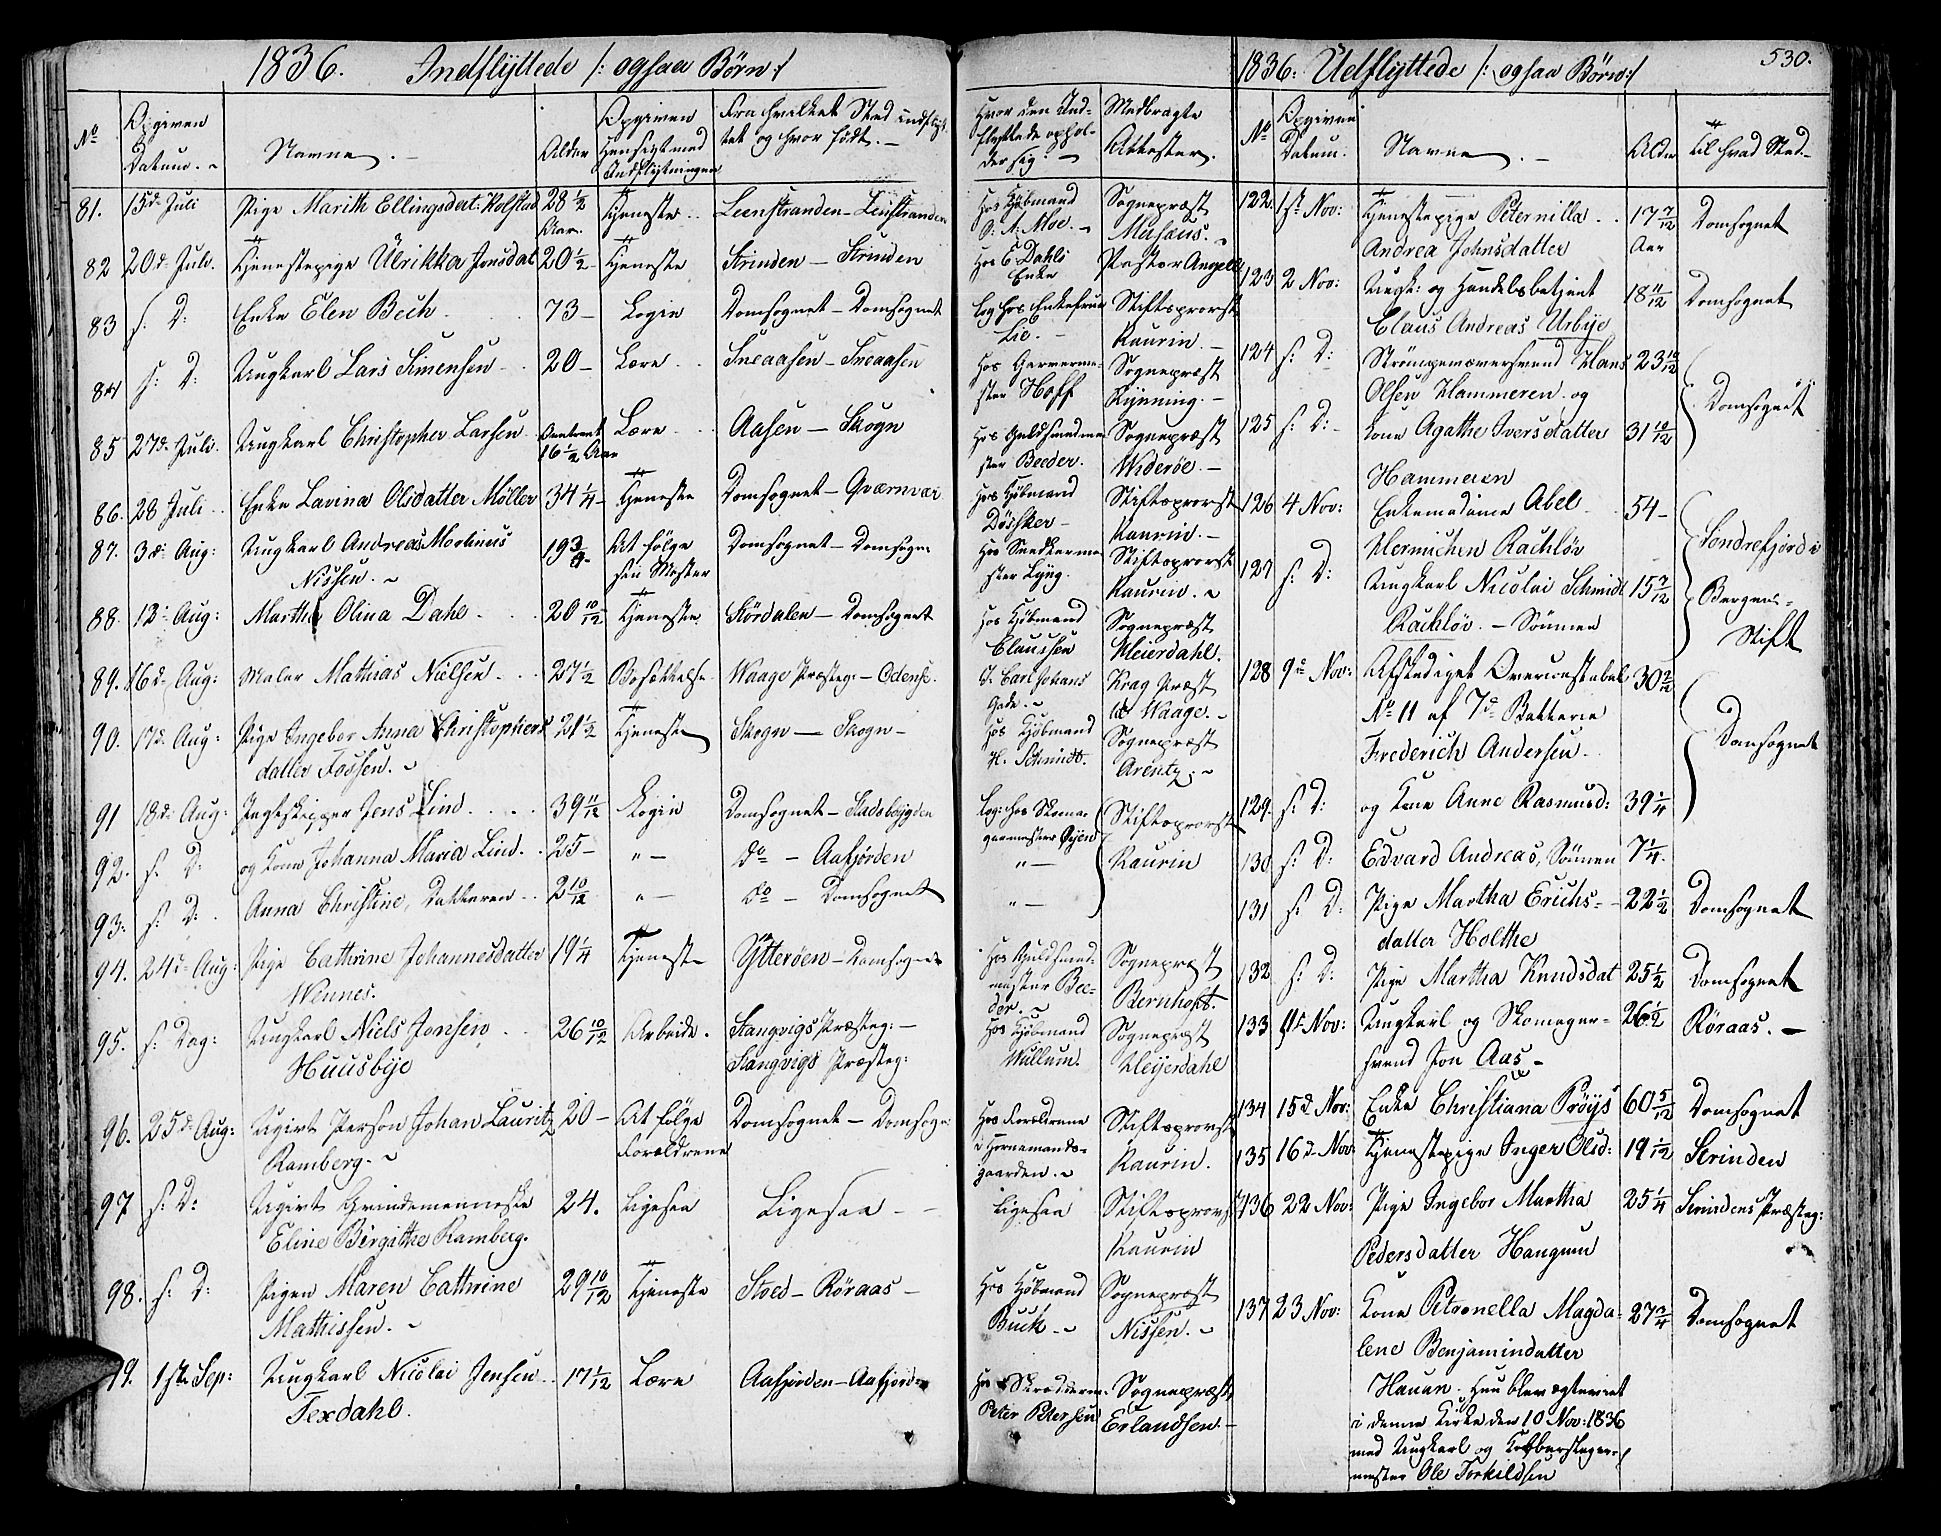 1836. Indflyttede /: ogsaa Børn :/
No
Opgiven Datum. Navne. Alder Opgiven Hensigt med Indflytningen Fra hvilket Sted indflyttet og hvor født. Hvor den Indflyttede opholder sig. Medbragte Attester.
81. 15de Juli Pige Marith Ellingsdatt: Holstad 28 1/2 Aar. Tjeneste Leenstranden – Leenstranden Hos Kjöbmand Moe. Sognepræst Musæus.
82 20de Juli. Tjenestepige Ulrikka Jonsdat 20 1/2 Tjeneste Strinden – Strinden Hos E Dahls Enke Pastor Angell
83 s: D: Enke Elen Bech 73 – Login Domsognet – Domsognet Log hos Enkefrue Lie. Stiftsprovst Kaurin. –
84 s: D: Ungkarl Lars Simensen 20 – Lære Sneaasen – Sneaasen Hos Garvermester Hoff Sognepræst Rynning. –
85 27de Juli. Ungkarl Christopher Larsen 16 1/2 Aar Lære Aasen – Skogn Hos Guldsmedmester Beeder. Sognepræst Widerøe. –
86. 28 Juli Enke Lavina Olsdatter Möller 34 1/4 – Tjeneste Domsognet – Qværnvær Hos Kjöbmand Stiftsprovst Kaurin. –
87. 3de Aug: Ungkarl Andreas Martinus Nissen. 19 3/4 At følge sin Moster Domsognet – Domsogn Lyng. Stiftsprovst Kaurin.
88. 12: Aug: Martha Olina Dahl 20 10/12 Tjeneste Stördalen – Domsognet Hos Kjöbmand Claussen Sognepræst Heierdahl.
89. 16de Aug: Maler Mathias Nielsen 27 1/2 Bosættelse Waage Præsteg: – Odense. I Carl Johans Gade. Krag Præst til Waage. –
90. 17de Aug: Pige Ingebor Anna Christophersdatter Fossen. 21 1/2 Tjeneste Skogn – Skogn – Hos Kjöbmand H. Schmidt. Sognepræst Arentz.
91 18de Aug: Jagtskipper Jens Lind 39 11/12 Login Domsognet – Stadsbøygden Log: hos Skomagermester Öyen Stiftsprovst Kaurin
92. s: D: og Kone Johanna Maria Lind. 25 – „ – do – Aafjörden „ –
93. s: D: Anna Christine, Datteren 2 10/12 „ – do – Domsognet „ –
94. 24de Aug: Pige Cathrine Johannesdatter Wennes. 19 1/4 Tjeneste Ytterøen – Domsognet Hos Guldsmedmester Beeder. Sognepræst Bernhoft.
95. s: Dag: Ungkarl Niels Jonsen Huusbye 26 10/12 Arbeide. Stangvigs Præsteg: – Stangvigs Præsteg: Hos Kjöbmand Wullum. Sognepræst Heyerdahl
96. 25de Aug: Ugivt Person Johan Lauritz Ramberg. 20 – At følge Forældrene Domsognet – Domsogn: Hos Forældrene i Hornemandsgaarden. Stiftsprovst Kaurin.
97 s: D: Ugivt Qvindemenneske Eline Birgithe Ramberg. 24. Ligesaa Ligesaa – Ligesaa Stiftsprovst Kaurin
98. s: D: Pigen Maren Cathrine Mathissen. 29 10/12 Tjeneste Stoed – Röraas – Hos Kjöbmand Buck. Sognepræst Nissen.
99. 1ste Sep: Ungkarl Nicolai Jensen Texdahl. 17 1/2 Lære Aafjorden – Aafjorden Hos Skræderm. Peter Petersen Sognepræst Erlandsen. –
1836: Udflyttede /: ogsaa Børn :/ 530.
No Opgiven Datum. Navne. – Alder Til hvad Sted. –
122. 1ste Nov: Tjenestepige Peternilla Andrea Johnsdatter 17 7/12 Aar Domsognet
123 2 Nov: Ungk: og Handelsbetjent Claus Andreas Urbye 18 11/12 Domsognet
124 s: D: Strömpevæversvend Hans Olsen Hammeren og 23 10/12 Domsognet
125 s: D: – Kone Agathe Iversdatter Hammeren 31 10/12
126 4 Nov: Enkemadame Abel Hermichen Rachlöv 54 – Söndrefjord i Bergens Stift
127 s: D: Ungkarl Nicolai Schmidt Rachlöv. – Sönnen 15 7/12
128 9de Nov: Afskediget Overconstabel No 11 af 7de Batterie Frederich Andersen. 30 2/12 Domsognet
129. s: D: og Kone Anne Rasmusd: 39 1/4
130 s: D: Edvard Andreas, Sönnen 7 1/4.
131 s: D: Pige Martha Erichsdatter Holthe 22 1/2 Domsognet
132 s: D: Pige Martha Knudsdat 25 1/2 Domsognet
133 Nov: Ungkarl og Skomagersvend Jon Aas – 26 1/2 Röraas. –
134 15de Nov: Enke Christiana Pröys 60 5/12 Domsognet
135 16de Nov: Tjenestepige Inger Olsd: 19 1/12 Strinden
136 22 Nov: Pige Ingebor Martha Pedersdatter Haugum 25 1/4 Strindens Præsteg:
137 23 Nov: Kone Petronella Magdalene Benjamindatter Hauan. Hun blev egteviet i denne Kirke den 10 Nov: 1836 med Ungkarl og Kobberslagermester Ole Torkildsen 27 3/4 Domsognet